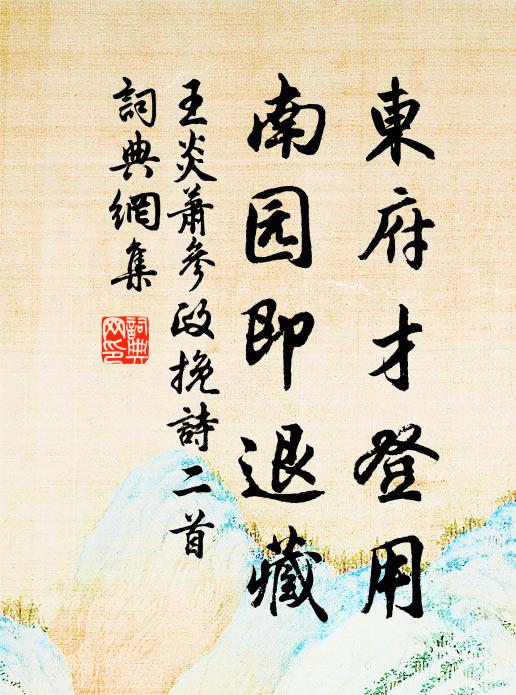 東府才登用
南园即退藏
王炎蕭參政挽詩二首
詞典網集
詞典网印